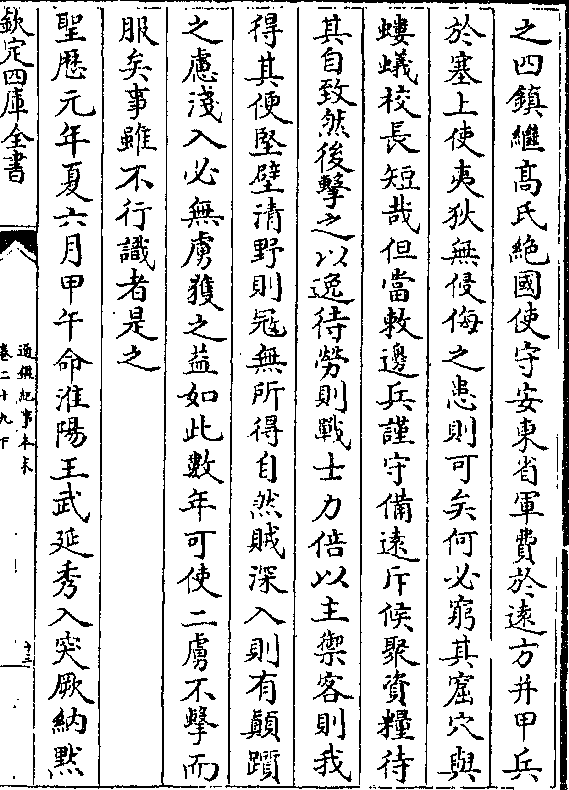 之四鎮繼高氏絶國使守安東省軍費於逺方并甲兵
於塞上使夷狄無侵侮之患則可矣何必窮其窟穴與
螻蟻校長短哉但當敕邊兵謹守備逺斥候聚資糧待
其自致然後擊之以逸待勞則戰士力倍以主禦客則我
得其便堅壁清野則冦無所得自然賊深入則有顛躓
之慮淺入必無虜獲之益如此數年可使二虜不擊而
服矣事雖不行識者是之
聖歴元年夏六月甲午命淮陽王武延秀入突厥納黙
欽定四庫全書
通鑑紀事本末
卷二十九下
十三